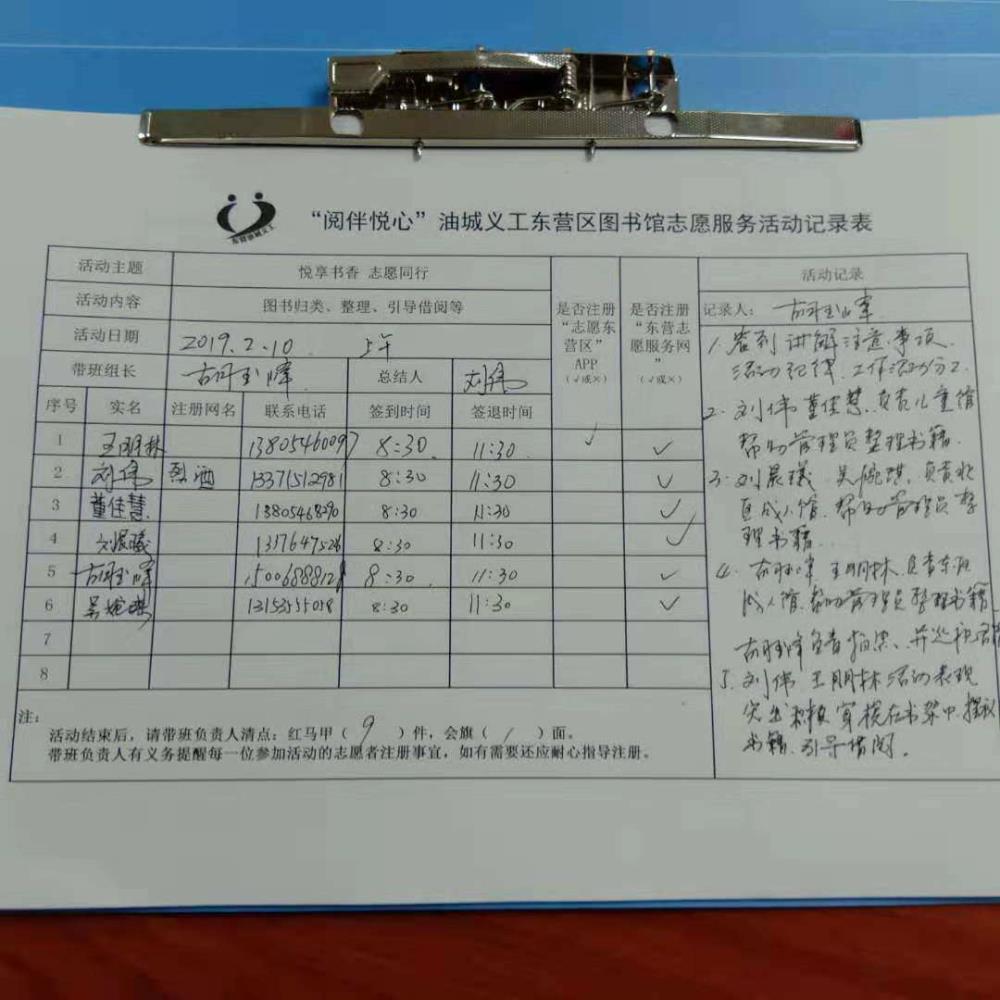 “阅伴悦心”油城义工东营区图书馆志愿服务活动记录表
活动主题 悦享书香 志愿同行
活动内容 图书归类、整理、引导借阅等
活动日期 2019.2.10 上午
带班组长 总结人 刘伟
是否注册“志愿东营区”APP(√或×)
是否注册“东营志愿服务网”(√或×)
序号 实名 注册网名 联系电话 签到时间 签退时间
1 王明林 13805460097 8:30 11:30 √ √
2 刘伟 13371512981 8:30 11:30 √
3 董佳慧 13805468290 8:30 11:30 √
4 刘晨曦 1317647526 8:30 11:30 √
5 8:30 11:30 √
6 8:30 11:30 √
7
8
注:
活动结束后,请带班负责人清点:红马甲(9)件,会旗(1)面。
带班负责人有义务提醒每一位参加活动的志愿者注册事宜,如有需要还应耐心指导注册。
活动记录
记录人:
1. 讲解注意事项
活动纪律、工作活动分工
2. 刘伟 董佳慧 负责儿童馆
帮助管理员整理书籍.
3. 刘晨曦、负责北
区成人馆、帮助管理员整
理书籍.
4. 王朋林 负责东区
成人馆、帮助管理员整理书籍
负责拍照、并巡视
5. 刘伟 王朋林 活动表现
突出 积极 穿梭在书架中
书籍、引导借阅。